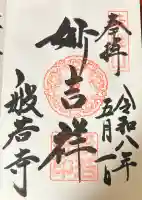 奉拝
令和八年
五月一日
妙吉祥
般若寺